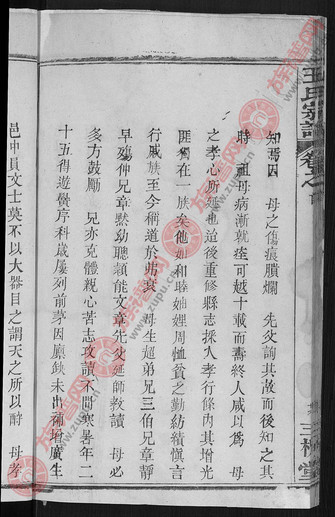 王氏宗譜
卷之
三槐堂
知焉因 母之傷痕膿爛 先父詢其故而後知之其
時 祖母病漸就痊可越十載而壽終人咸以為 母
之孝心所致也迨後重修縣志採入孝行條內其增光
匪獨在一族矣他如和睦妯娌周恤貧乏勤紡績慎言
行戚族至今稱道於弗衰 母生超弟兄三伯兄章靜
早殤仲兄章黙幼聰穎能文章先父延師教讀 母必
多方鼓勵 兄亦克體親心苦志攻讀不間寒暑年二
十五得遊黌序科歲屢列前茅因廩缺未出補增廣生
邑中員文士莫不以大器目之謂天之所以酧 母孝
族譜網
www.zupu.cn